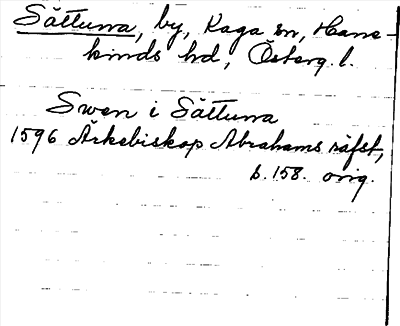 Sättuna, by, Kaga sn, Hane-
kinds hd, Österg. l.
Swen i Sättuna
1596 Ärkebiskop Abrahams räfst,
b. 158. orig.